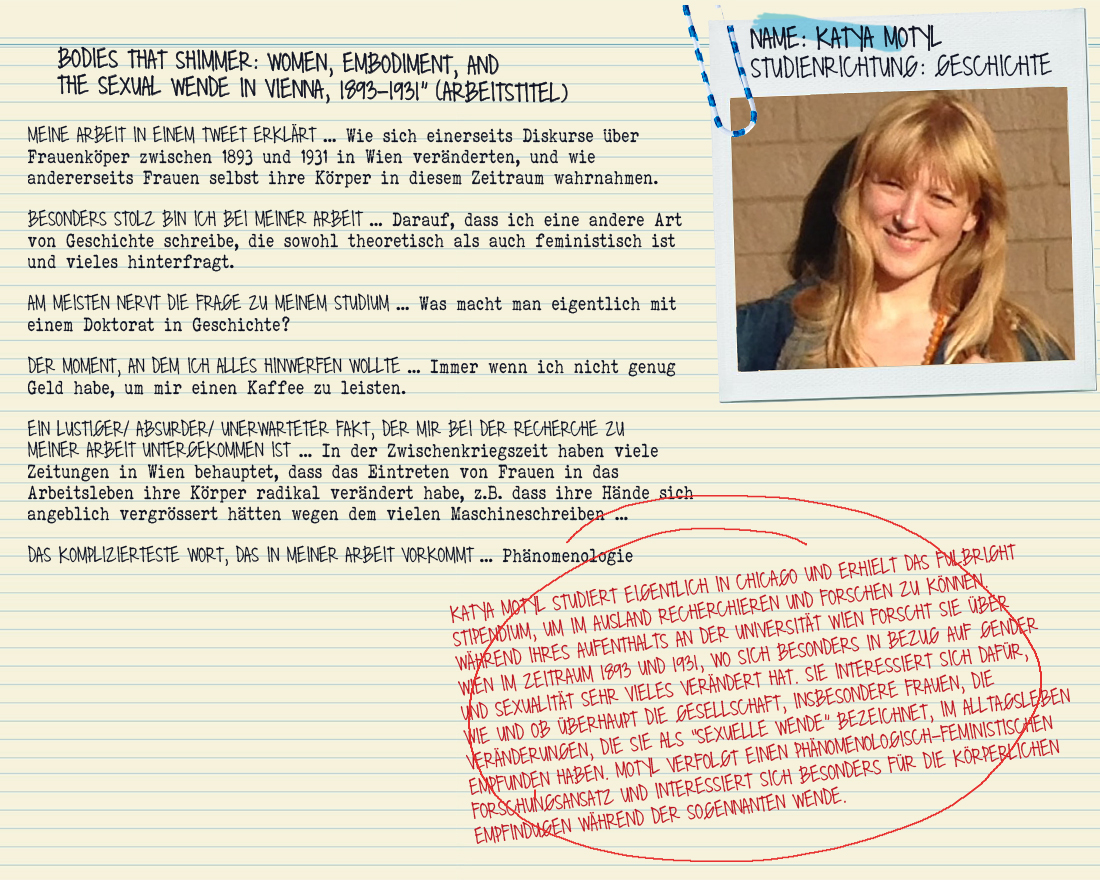 BODIES THAT SHIMMER: WOMEN, EMBODIMENT, AND
THE SEXUAL WENDE IN VIENNA, 1893–1931" (ARBEITSTITEL)
NAME: KATYA MOTYL
STUDIENRICHTUNG: GESCHICHTE
MEINE ARBEIT IN EINEM TWEET ERKLÄRT ... Wie sich einerseits Diskurse über
Frauenköper zwischen 1893 und 1931 in Wien veränderten, und wie
andererseits Frauen selbst ihre Körper in diesem Zeitraum wahrnahmen.
BESONDERS STOLZ BIN ICH BEI MEINER ARBEIT ... Darauf, dass ich eine andere Art
von Geschichte schreibe, die sowohl theoretisch als auch feministisch ist
und vieles hinterfragt.
AM MEISTEN NERVT DIE FRAGE ZU MEINEM STUDIUM ... Was macht man eigentlich mit
einem Doktorat in Geschichte?
DER MOMENT, AN DEM ICH ALLES HINWERFEN WOLLTE ... Immer wenn ich nicht genug
Geld habe, um mir einen Kaffee zu leisten.
EIN LUSTIGER/ ABSURDER/ UNERWARTETER FAKT, DER MIR BEI DER RECHERCHE ZU
MEINER ARBEIT UNTERGEKOMMEN IST ... In der Zwischenkriegszeit haben viele
Zeitungen in Wien behauptet, dass das Eintreten von Frauen in das
Arbeitsleben ihre Körper radikal verändert habe, z.B. dass ihre Hände sich
angeblich vergrössert hätten wegen dem vielen Maschineschreiben ...
DAS KOMPLIZIERTESTE WORT, DAS IN MEINER ARBEIT VORKOMMT ... Phänomenologie
KATYA MOTYL STUDIERT EIGENTLICH IN CHICAGO UND ERHIELT DAS FULBRIGHT
STIPENDIUM, UM IM AUSLAND RECHERCHIEREN UND FORSCHEN ZU KÖNNEN.
WÄHREND IHRES AUFENTHALTS AN DER UNIVERSITÄT WIEN FORSCHT SIE ÜBER
WIEN IM ZEITRAUM 1893 UND 1931, WO SICH BESONDERS IN BEZUG AUF GENDER
UND SEXUALITÄT SEHR VIELES VERÄNDERT HAT. SIE INTERESSIERT SICH DAFÜR,
WIE UND OB ÜBERHAUPT DIE GESELLSCHAFT, INSBESONDERE FRAUEN, DIE
VERÄNDERUNGEN, DIE SIE ALS "SEXUELLE WENDE" BEZEICHNET, IM ALLTAGSLEBEN
EMPFUNDEN HABEN. MOTYL VERFOLGT EINEN PHÄNOMENOLOGISCH-FEMINISTISCHEN
FORSCHUNGSANSATZ UND INTERESSIERT SICH BESONDERS FÜR DIE KÖRPERLICHEN
EMPFINDUGEN WÄHREND DER SOGENNANTEN WENDE.